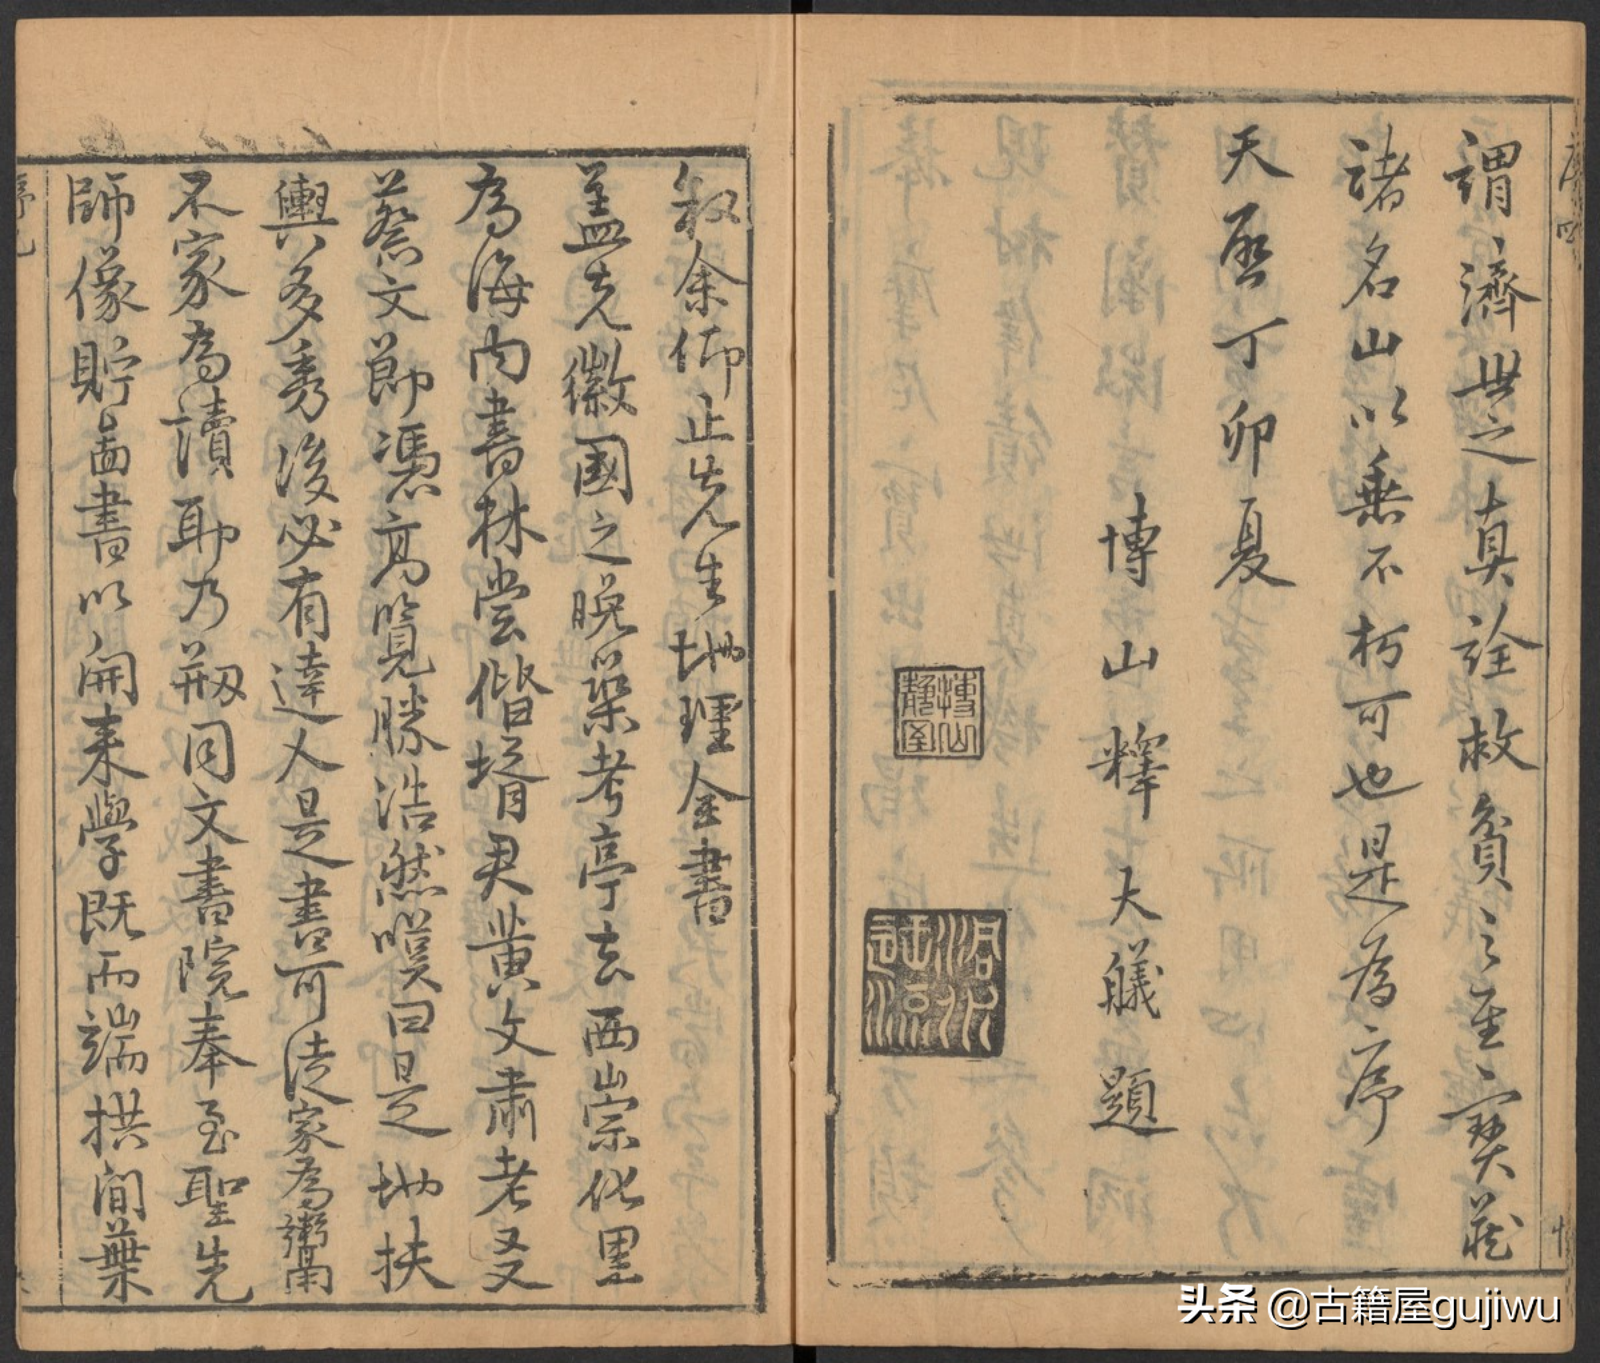 謂濟世之真詮救貧之至寶藏
諸名山以垂不朽可也是為序
天啟丁卯夏
博山釋大艤題
博山靜室
叙余仰止先生地理全書
盖先徽國之晚築考亭去西山崇化里
為海内書林嘗偕壻君黃文肅老友
蔡文節憑高覽勝浩然嘆曰是地扶
輿多秀後必有達人是書可徒家為鬻
不家為讀耶乃剏同文書院奉至聖先
師像貯啚書以開来學既而端拱間葉
头条 @古籍屋gujiwu